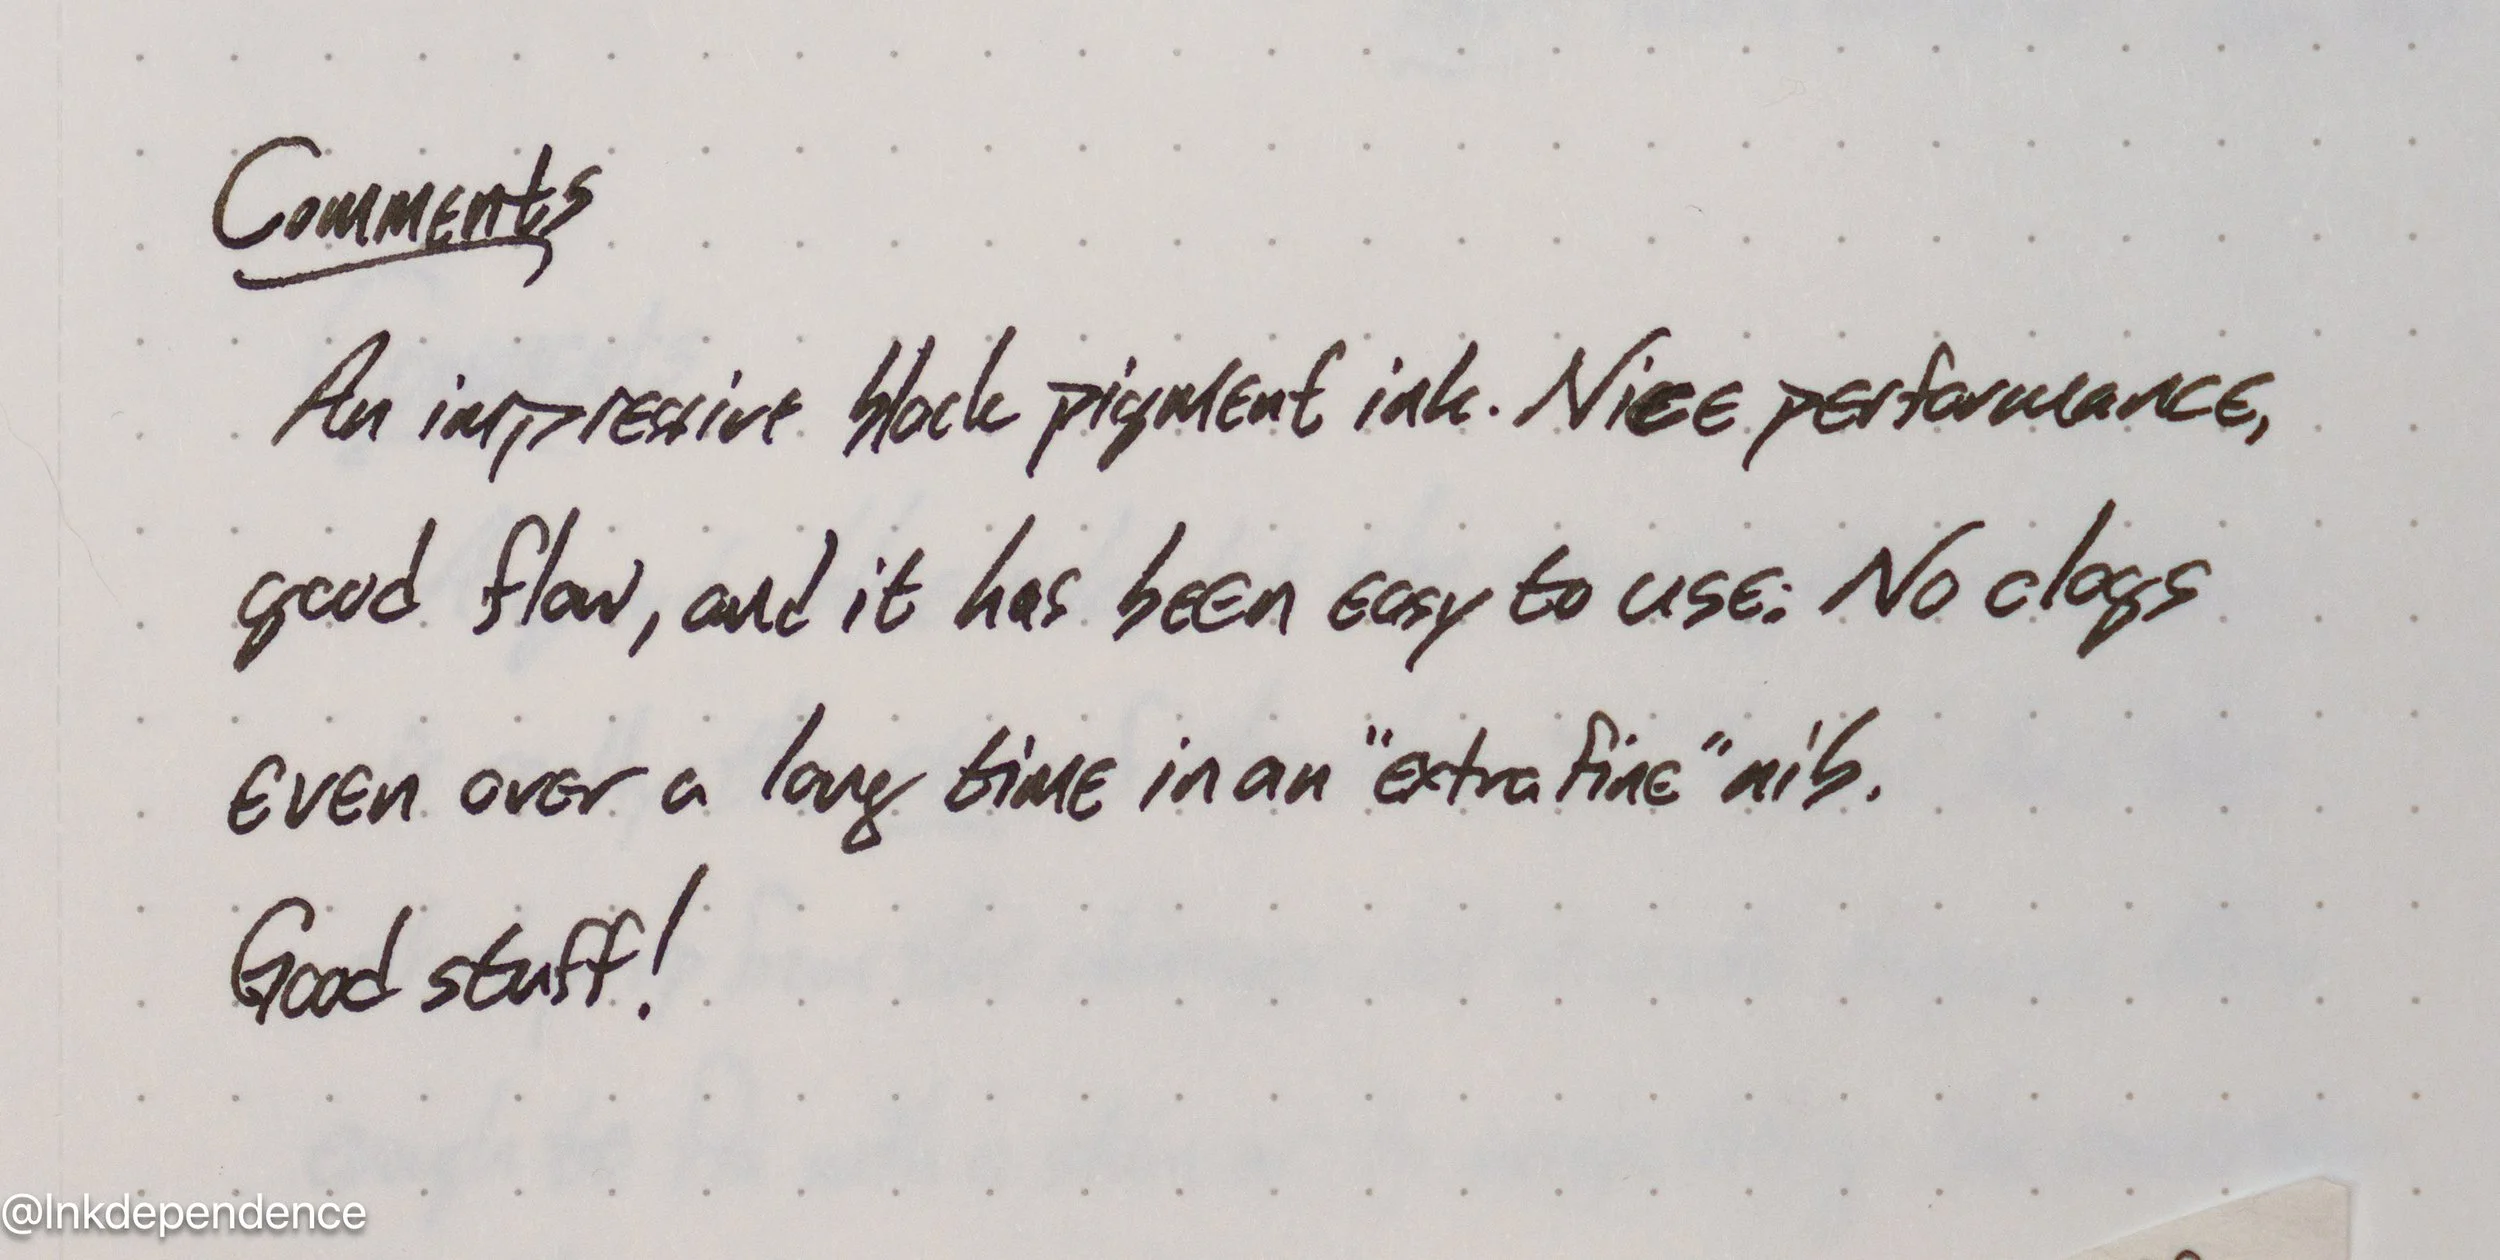 Comments
An impressive black pigment ink. Nice performance,
good flow, and it has been easy to use: No clogs
even over a long time in an "extra fine" nib.
Good stuff!
@Inkdependence